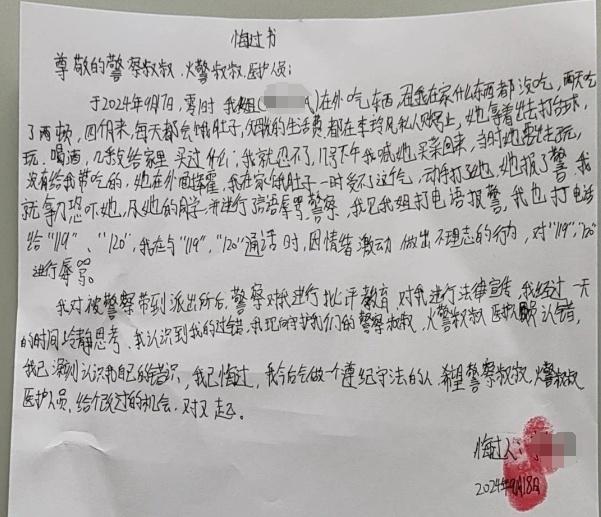 悔过书
尊敬的警察叔叔、火警叔叔、医护人员:
于2024年9月7日,零时 我姐( )在外吃东西,且我在家什么东西都没吃,两天吃
了两顿,四个月来,每天都会饿肚子,父母的生活费都在李玲凤私人账号上,她拿着去打台球,
玩、喝酒,几乎没给家里买过什么;我就忍不了,17号下午我喊她买菜回来,当时她要出去玩,
没有给我带吃的,她在外面挥霍,我在家饿肚子一时受不了这气,动手打了她,她报了警,我
就拿刀恐吓她,及她的同学,并进行言语辱骂警察,我见我姐打电话报警,我也打电话
给"119"、"120",我在与"119","120"通话时,因情绪激动做出不理志的行为,对"119","120"
进行辱骂。
我对被警察带到派出所后,警察对我进行批评教育,对我进行法律宣传,我经过一天
的时间冷静思考,我认识到我的过错,我现向守护我们的警察叔叔,火警叔叔医护人员认错,
我已深刻认识我自己的错识,我已悔过,我今后会做一个遵纪守法的人,希望警察叔叔,火警叔叔
医护人员,给个改过的机会,对不起。
悔过人:
2024年9月18日